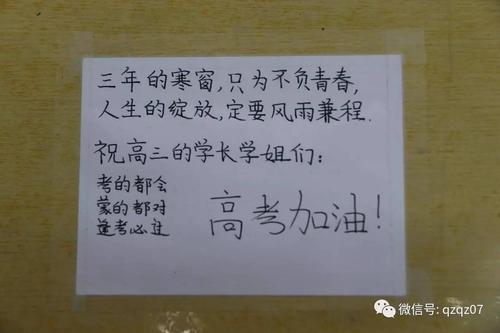 三年的寒窗,只为不负青春,
人生的绽放,定要风雨兼程.
祝高三的学长学姐们:
考的都会
蒙的都对
逢考必过
高考加油!
微信号: qzqz07